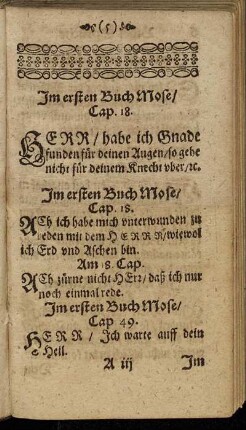 (5)
Im ersten Buch Mose/
Cap. 18.
HERR/ habe ich Gnade
funden für deinen Augen/ so gehe
nicht für deinem Knecht vber/ ꝛc.
Im ersten Buch Mose/
Cap. 18.
ACh ich habe mich vnterwunden zu
reden mit dem HERRN/ wiewol
ich Erd vnd Aschen bin.
Am 18. Cap.
ACh zürne nicht HErr/ daß ich nur
noch einmal rede.
Im ersten Buch Mose/
Cap. 49.
HERR/ Ich warte auff dein
Heil.
A iij Im